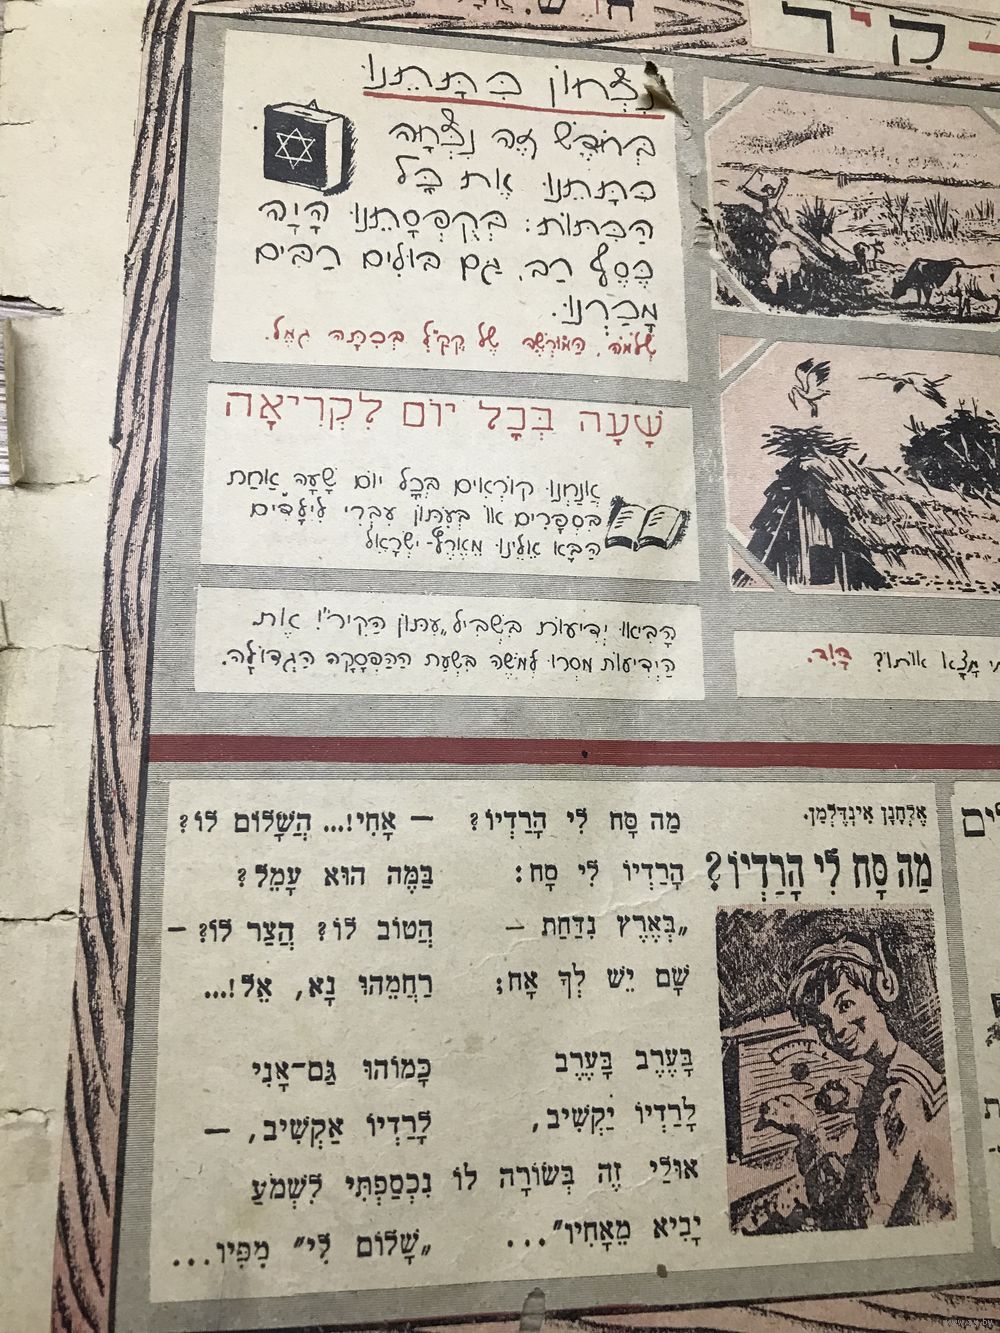 קִיר
נִצְּחוֹן כִּתָּתֵנוּ
בְּחֹדֶשׁ זֶה נִצְּחָה
כִּתָּתֵנוּ אֶת כָּל
הַכִּתּוֹת: בְּקֻפְסָתֵנוּ הָיָה
כֶּסֶף רַב, גַּם בּוּלִים רַבִּים
מָכַרְנוּ.
שְׁלֹמֹה, הַמּוּרְשֶׁה שֶׁל קַקַ״ל בְּכִתָּה גִמֶל.
שָׁעָה בְּכָל יוֹם לִקְרִיאָה
אֲנַחְנוּ קוֹרְאִים בְּכָל יוֹם שָׁעָה אַחַת
בִּסְפָרִים אוֹ בְּעִתּוֹן עִבְרִי לִילָדִים
הַבָּא אֵלֵינוּ מֵאֶרֶץ־יִשְׂרָאֵל
הָבִיאוּ יְדִיעוֹת בִּשְׁבִיל „עִתּוֹן הַקִּיר״! אֶת
הַיְדִיעוֹת מִסְרוּ לְמֹשֶׁה בִּשְׁעַת הַהַפְסָקָה הַגְּדוֹלָה.
מָצָא אוֹתוֹ? דָּוִד.
אֶלְחָנָן אִינְדֶּלְמַן.
מַה סָּח לִי הָרַדְיוֹ?
מַה סָּח לִי הָרַדְיוֹ?
הָרַדְיוֹ לִי סָח:
„בְּאֶרֶץ נִדַּחַת –
שָׁם יֵשׁ לְךָ אָח;
בָּעֶרֶב בָּעֶרֶב
לָרַדְיוֹ יַקְשִׁיב,
אוּלַי זֶה בְּשׂוֹרָה לוֹ
יָבִיא מֵאָחִיו״...
– אָחִי!... הֲשָׁלוֹם לוֹ?
בַּמֶּה הוּא עָמֵל?
הֲטוֹב לוֹ? הֲצַר לוֹ? –
רַחֲמֵהוּ נָא, אֵל!...
כָּמוֹהוּ גַּם־אָנִי
לָרַדְיוֹ אַקְשִׁיב, –
נִכְסַפְתִּי לִשְׁמֹעַ
„שָׁלוֹם לִי״ מִפִּיו...